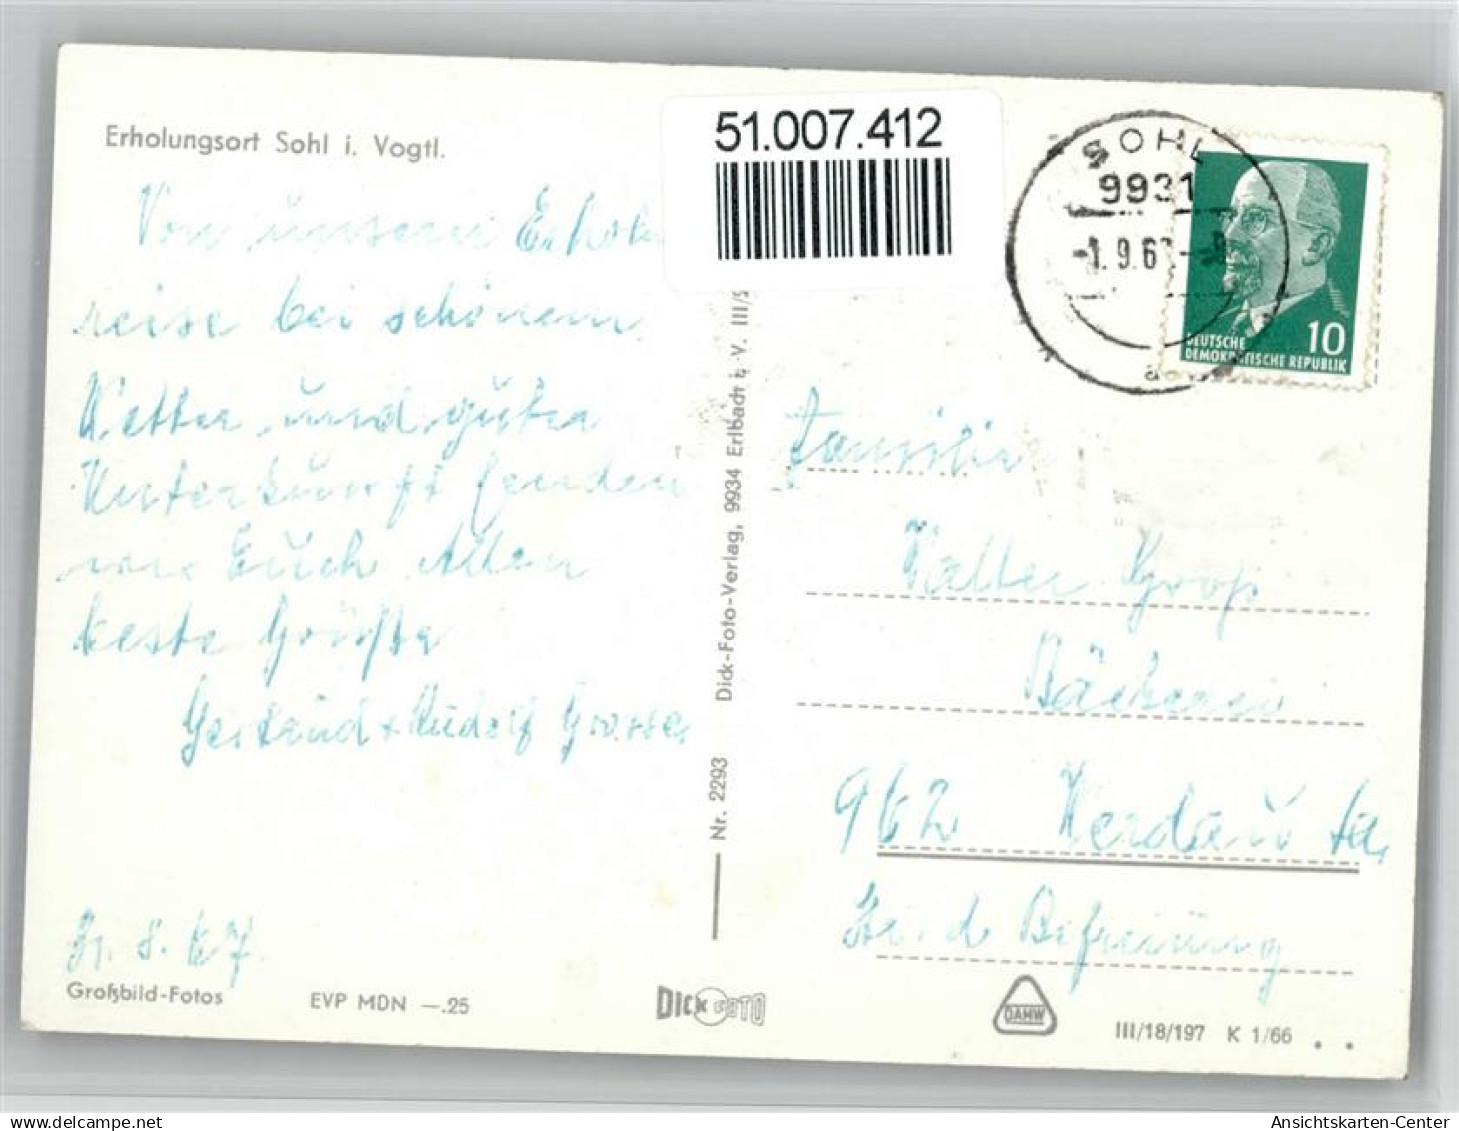 Erholungsort Sohl i. Vogtl.
51.007.412
SOHL
9931
-1.9.67-
10
DEUTSCHE
DEMOKRATISCHE REPUBLIK
Von unseren Erholu
reise bei schönem
Wetter und guter
Unterkunft senden
wir Euch Allen
beste Grüße
Gertraud + Rudolf Grosse
31. 8. 67.
Großbild-Fotos
EVP MDN —.25
Nr. 2293 Dick-Foto-Verlag, 9934 Erlbach i. V. III/S
DICK FOTO
Familie
Walter Groß
Bäckerei
962 Werdau Sa.
Str. d. Befreiung
DAMW
III/18/197 K 1/66
Ansichtskarten-Center